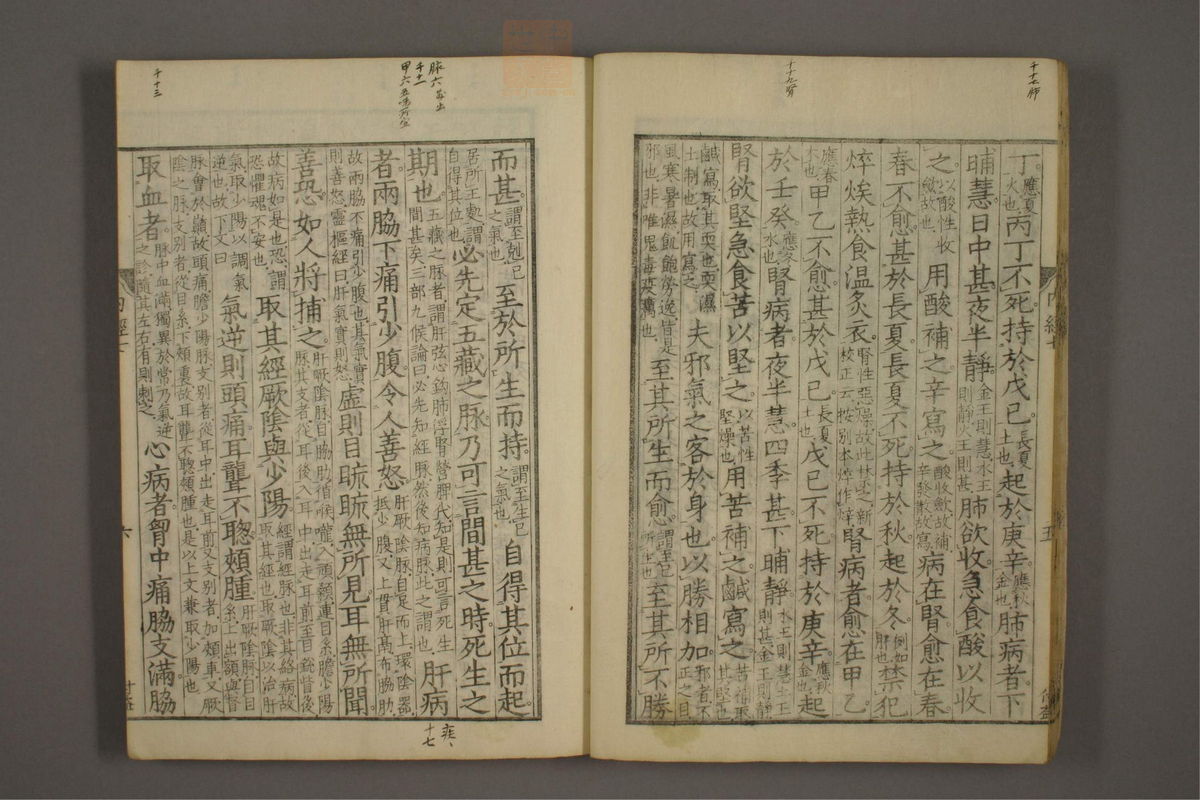 丁應夏火也丙丁不死持於戊己長夏土也起於庚辛應秋金也肺病者下
晡慧日中甚夜半靜金王則慧水王則靜火王則甚肺欲收急食酸以收
之以酸性收斂故也用酸補之辛寫之酸收斂故補辛發散故寫病在腎愈在春
春不愈甚於長夏長夏不死持於秋起於冬例如肝也禁犯
焠㶼熱食溫炙衣腎性惡燥故此禁之新校正云按別本焠作腎病者愈在甲乙
應春木也甲乙不愈甚於戊己長夏土也戊己不死持於庚辛應秋金也起
於壬癸應冬水也腎病者夜半慧四季甚下晡靜水王則慧土王則甚金王則靜
腎欲堅急食苦以堅之以苦性堅燥也用苦補之鹹寫之苦補取其堅也
鹹寫取其耎也耎濕土制也故用寫之夫邪氣之客於身也以勝相加邪者不正之目
風寒暑濕飢飽勞逸皆是邪也非唯鬼毒疫癘也至其所生而愈謂至己所生也至其所不勝
內經七
五
而甚謂至剋己之氣也至於所生而持謂至生己之氣也自得其位而起
居所王處謂自得其位也必先定五藏之脉乃可言間甚之時死生之
期也五藏之脉者謂肝弦心鉤肺浮腎營脾代知是則可言死生間甚矣三部九候論曰必先知經脉然後知病脉此之謂也肝病
者兩脇下痛引少腹令人善怒肝厥陰脉自足而上環陰器抵少腹又上貫肝鬲布脇肋
故兩脇下痛引少腹也其氣實則善怒靈樞經曰肝氣實則怒虛則目䀮䀮無所見耳無所聞
善恐如人將捕之肝厥陰脉自脇肋循喉嚨入頏顙連目系膽少陽脉其支者從耳後入耳中出走耳前至目銳眥後
故病如是也恐謂恐懼魂不安也取其經厥陰與少陽經謂經脉也非其絡病故取其經也取厥陰以治肝
氣取少陽以調氣逆也故下文曰氣逆則頭痛耳聾不聦頰腫肝厥陰脉自目系上出額與督
脉會於巔故頭痛膽少陽脉支別者從耳中出走耳前又支別者加頰車又厥陰之脉支別者從目系下頰裏故耳聾不聦頰腫也是以上文兼取少陽也
取血者脉中血滿獨異於常乃氣逆之診隨其左右有則刺之心病者胷中痛脇支滿脇
六
千十七肺
千十九腎
千十一
千十三
十七